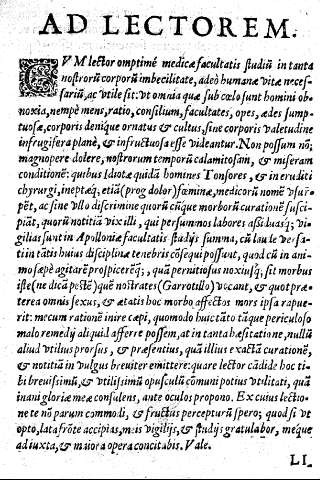 AD LECTOREM.
CVM lector omptimè medicæ facultatis studiũ in tanta
nostrorũ corporũ imbecilitate, adeò humanæ vitæ neces-
sariũ, ac vtile sit: vt omnia quæ sub cœlo sunt homini ob-
noxia, nempè mens, ratio, consilium, facultates, opes, ædes sump-
tuosæ, corporis denique ornatus & cultus, sine corporis valetudine
infrugifera planè, & infructuosa esse videantur. Non possum nõ;
magnopere dolere, nostrorum temporũ calamitosam, & miseram
conditionẽ: quibus Idiotæ quidã homines Tonsores, & in eruditi
chyrurgi, ineptæq, etiã (prog dolor) fœminæ, medicorũ nomẽ vsur-
pẽt, ac sine vllo discrimine quorũ cũque morborũ curationẽ susci-
piãt, quorũ notitiã vix illi, qui per summos labores assiduasq; vi-
gilias sunt in Apolloniæ facultatis studijs summa, cũ laude versa-
ti in tãtis huius disciplinæ tenebris cõsequi possunt, quod cũ in ani-
mo sæpè agitarẽ prospicerẽq; , quã pernitiosus noxiusq; sit morbus
iste (ne dicã pestẽ) quẽ nostrates (Garrotillo) vocant, & quot præ-
terea omnis sexus, & ætatis hoc morbo affectos mors ipsa rapue-
rit: mecum rationẽ inire cæpi, quomodo huic tãto tãque periculoso
malo remedij aliquid afferre possem, at in tanta hæsitatione, nullũ
aliud vtilius prorsus, & præsentius, quã illius exactã curationẽ,
& notitiã in vulgus breuiter emittere: quare lector cãdide hoc ti-
bi breuissimũ, & vtilissimũ opusculũ cõmuni potius vtilitati, quã
inani gloriæ meæ consulens, ante oculos propono. Ex cuius lectio-
ne te nõ parum commodi, & fructus percepturũ spero; quod si vt
opto, lata frõte accipias, meis vigilijs, & studijs gratulabor, meque
ad iuxta, & maiora opera concitabis. Vale.
LI-